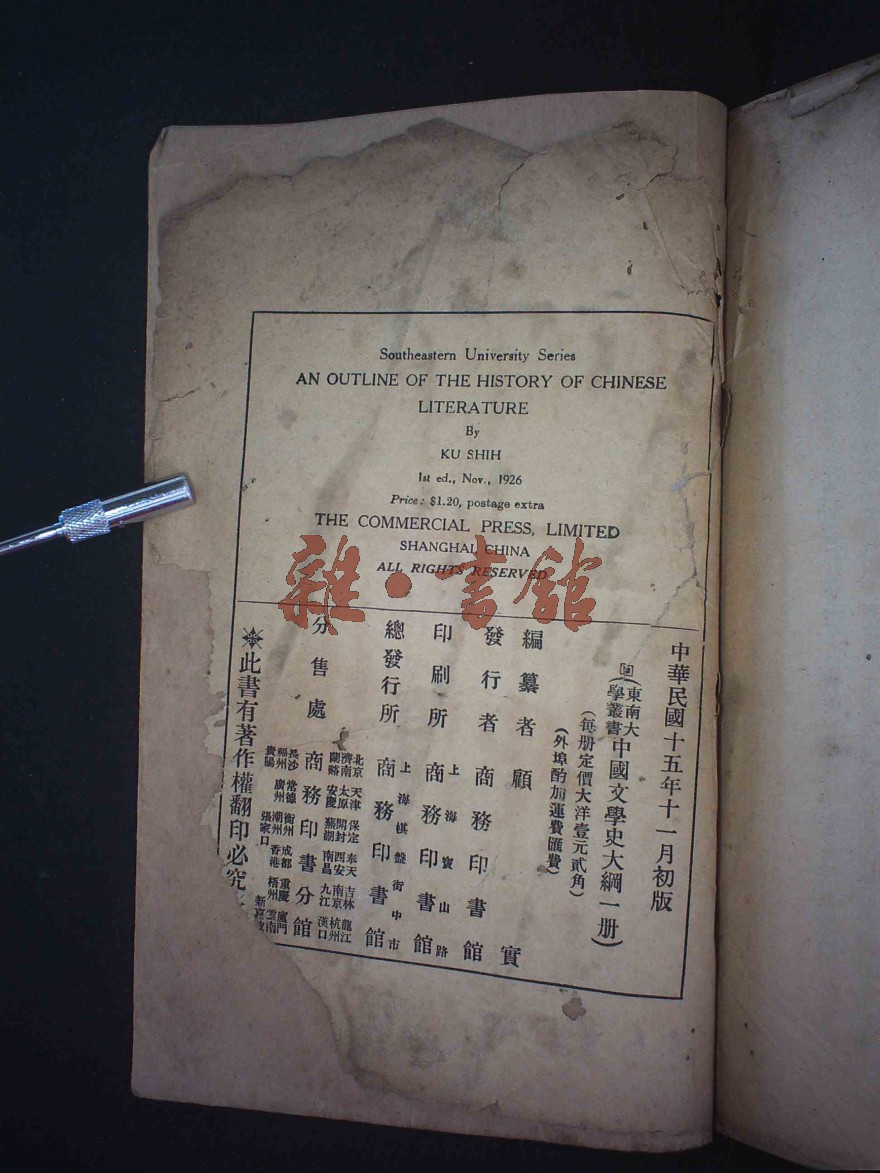 Southeastern University Series
AN OUTLINE OF THE HISTORY OF CHINESE
LITERATURE
By
KU SHIH
1st ed., Nov., 1926
Price: $1.20, postage extra
THE COMMERCIAL PRESS, LIMITED
SHANGHAI, CHINA
ALL RIGHTS RESERVED
雜·書館
中華民國十五年十一月初版
(東南大學叢書中國文學史大綱一册)
(每册定價大洋壹元貳角)
(外埠酌加運費匯費)
編纂者 顧實
發行者 商務印書館
印刷所 上海寶山路 商務印書館
總發行所 上海棋盤街中市 商務印書館
分售處 商務印書分館
北京 天津 保定 奉天 吉林 龍江
濟南 太原 開封 西安 南京 杭州
蘭谿 安慶 蕪湖 南昌 九江 漢口
長沙 常德 衡州 成都 重慶
福州 廣州 潮州 香港 梧州 雲南
貴陽 張家口
※此書有著作權翻印必究